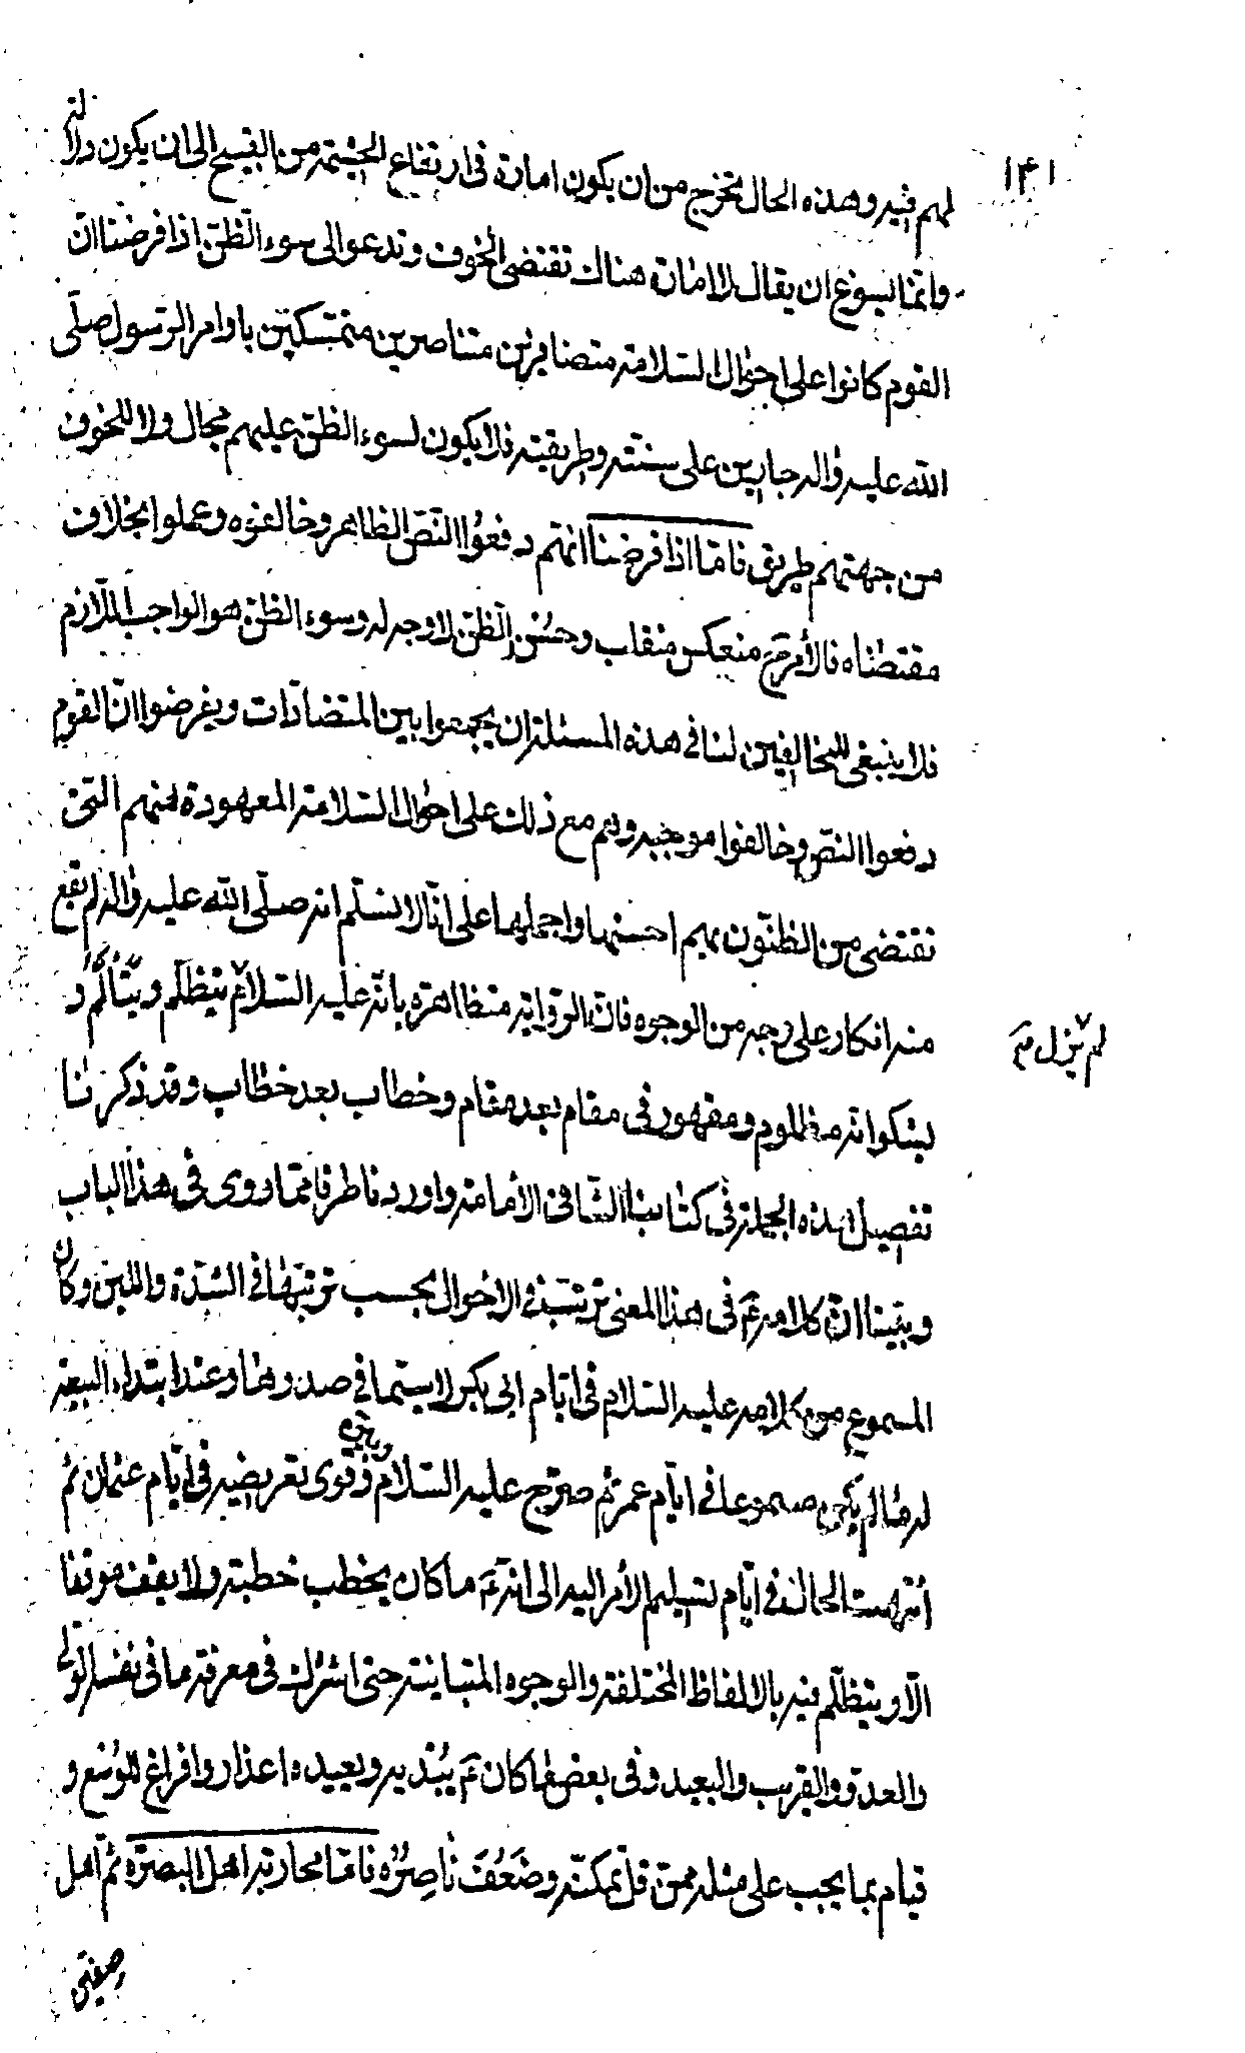 ۱۴۱
لهم فيه وهذه الحال تخرج من ان يكون امارة فى ارتفاع الخشية من القبيح الى ان يكون دلالة
وانما يسوغ ان يقال لا امارة هناك تقتضى الخوف وتدعو الى سوء الظن اذا فرضنا ان
القوم كانوا على احوال السلامة متضافرين متناصرين متمسكين باوامر الرسول صلّى
الله عليه واله جارين على سنته وطريقته فلا يكون لسوء الظن عليهم مجال ولا للخوف
من جهتهم طريق فامّا اذا فرضنا انهم دفعوا النصّ الظاهر وخالفوه وعملوا بخلاف
مقتضاه فالأمر ح منعكس منقلب وحسن الظن لا وجه له وسوء الظن هو الواجب اللازم
فلا ينبغى للمخالفين لنا فى هذه المسئلة ان يجمعوا بين المتضادّات ويفرضوا انّ القوم
دفعوا النصّ وخالفوا موجبه وهم مع ذلك على احوال السلامة المعهودة منهم التى
تقتضى من الظنون بهم احسنها واجملها على انّا لا نسلّم انه صلّى الله عليه واله لم يقع
منه انكار على وجه من الوجوه فانّ الرواية متظاهرة بانّه عليه السلام يتظلّم ويتألّم و
لم يزل ح
يشكو انه مظلوم ومقهور فى مقام بعد مقام وخطاب بعد خطاب وقد ذكرنا
تفصيل هذه الجملة فى كتابنا الشافى فى الأمامة واوردنا طرفا ممّا روى فى هذا الباب
وبيّنا انّ كلامه ع فى هذا المعنى ترتّب فى الاحوال بحسب ترتبها فى الشدّة واللين وكان
المسموع من كلامه عليه السلام فى ايّام ابى بكر لا سيّما فى صدرها وعند ابتداء البيعة
له ما لم يكن مسموعا فى ايّام عمر ثم صرّح عليه السلام وقوى تعريضه فى ايّام عثمان ثم
انتهت الحال فى ايّام تسليم الأمر اليه الى انه ع ما كان يخطب خطبة ولا يقف موقفا
الّا ويتظلّم فيه بالالفاظ المختلفة والوجوه المتباينة حتى اشترك فى معرفة ما فى نفسه الولى
والعدوّ والقريب والبعيد وفى بعض ما كان ع يبديه ويعيده اعذار وافراغ للوسع و
قيام بما يجب على مثله ممن قلّ تمكنه وضعف ناصره فامّا محاربة اهل البصرة ثم اهل
صفين